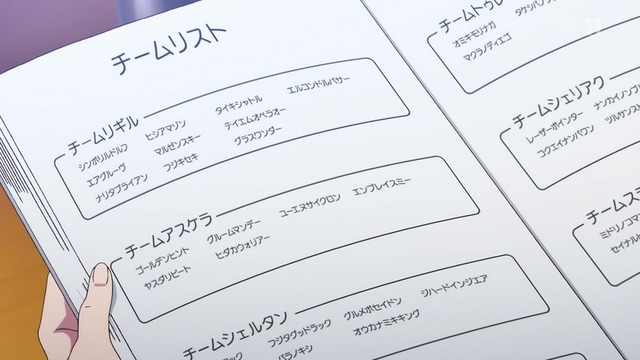 チームリスト
チームリギル
シンボリルドルフ ヒシアマゾン タイキシャトル エルコンドルパサー
エアグルーヴ マルゼンスキー テイエムオペラオー
ナリタブライアン フジキセキ グラスワンダー
チームアスケラ
ゴールデンセント グルームマンデー ユーエヌサイクロン エンプレイスミー
ヤスダリピート ヒダカウォリアー
チームシェルタン
フジタグッドラック グルメポセイドン ジハードインジェア
パラノキシ オウカナミキキング
チームトゥレ
オミキモリナガ
マクラノディエゴ
チームシェリアク
レーザーポインター
コクエイナンバワン
チームス